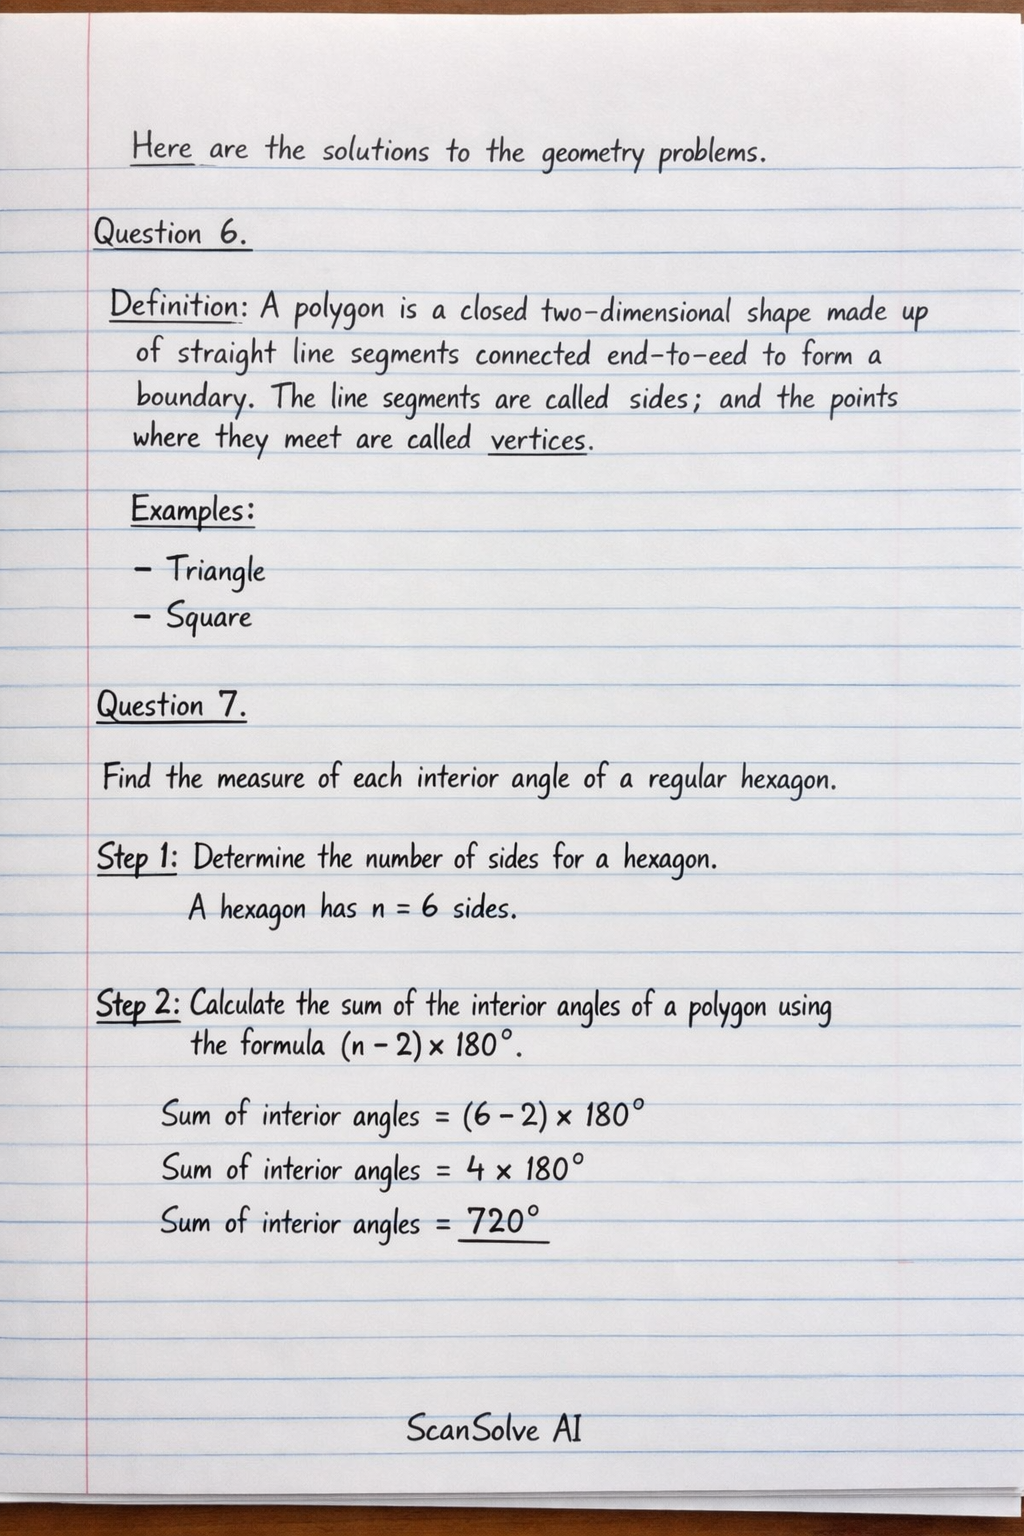 Here are the solutions to the geometry problems.
Question 6.
Definition: A polygon is a closed two-dimensional shape made up
of straight line segments connected end-to-eed to form a
boundary. The line segments are called sides; and the points
where they meet are called vertices.
Examples:
- Triangle
- Square
Question 7.
Find the measure of each interior angle of a regular hexagon.
Step 1: Determine the number of sides for a hexagon.
A hexagon has n = 6 sides.
Step 2: Calculate the sum of the interior angles of a polygon using
the formula (n - 2) × 180°.
Sum of interior angles = (6 - 2) × 180°
Sum of interior angles = 4 × 180°
Sum of interior angles = 720°
ScanSolve AI